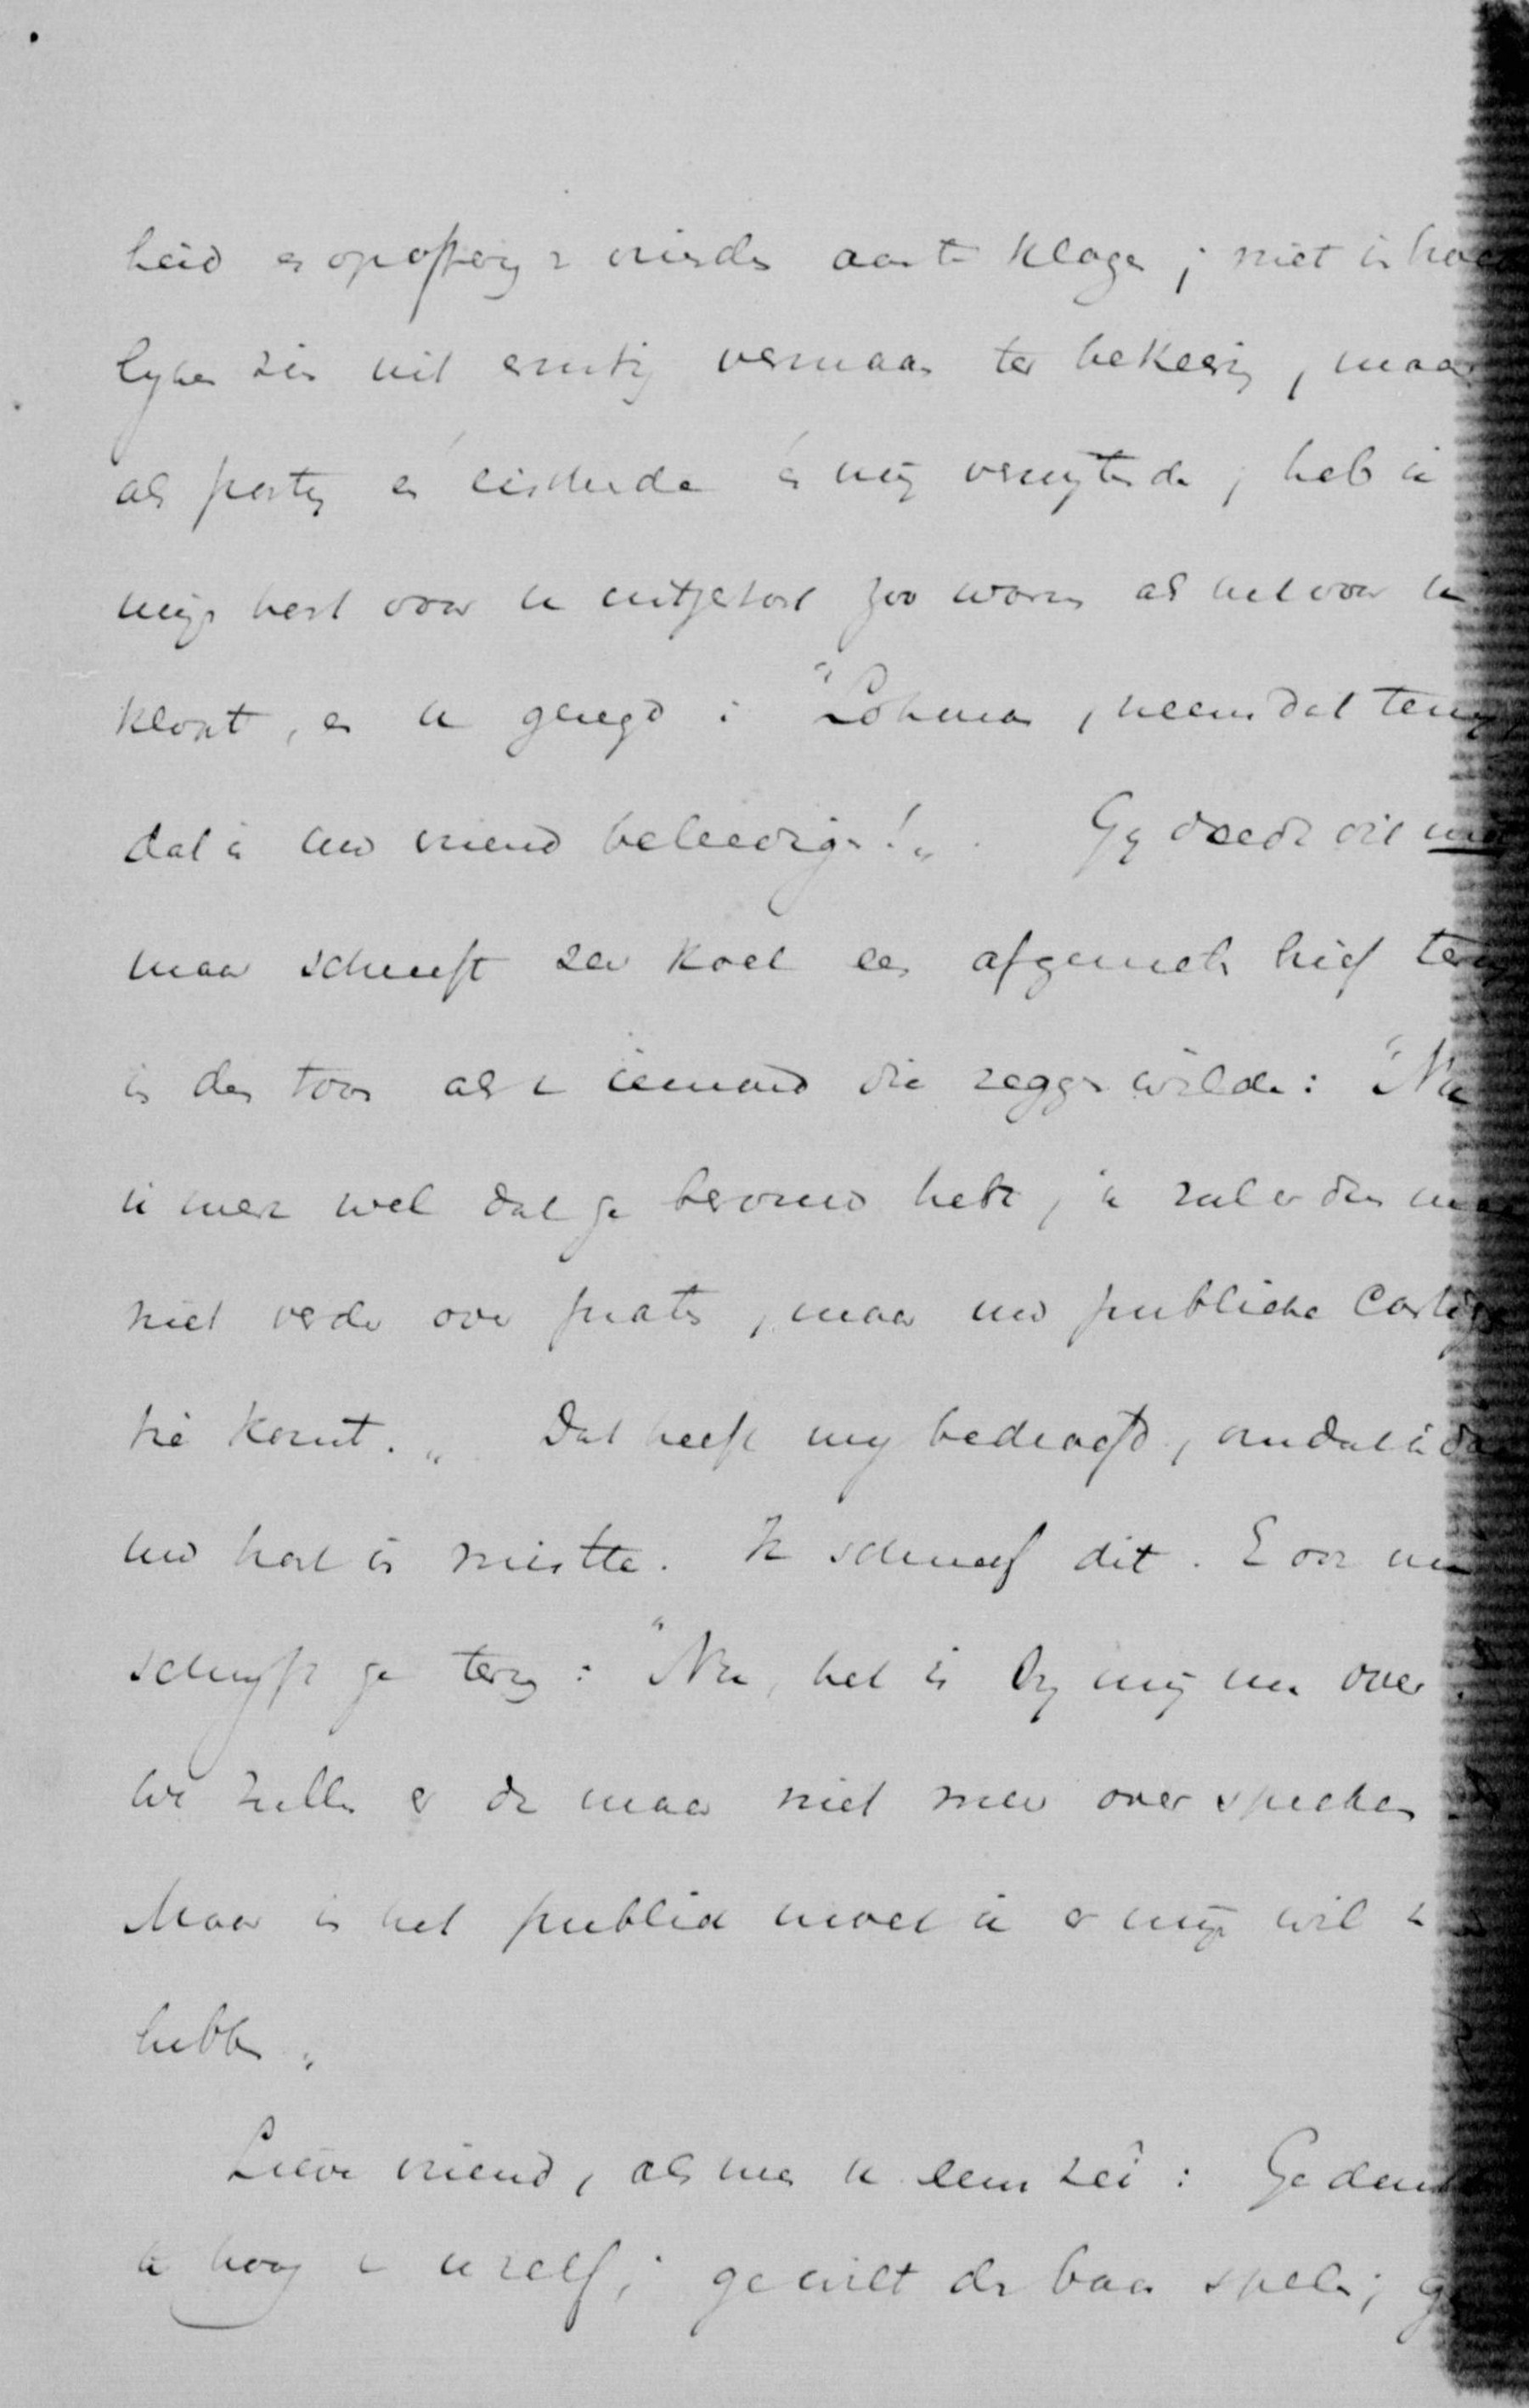 heid en opoffering v vrienden aan te klagen; niet in
lyken zin uit ernstig vermaan ter bekeering, maar
als party en eischende en my verwytende, heb ik
myn hart voor u uitgestort zoo warm als het voor u
klopt, en u gezegd: "Lohman, neem dat terug
dat is uw vriend beleedigen!" Gy deedt dit
maar schreeft zeer koel een afgemeten brief terug
in den toon als v iemand die zeggen wilde: "Nu
ik merk wel dat ge berouw hebt, ik zal er dan maar
niet verder over praten, maar uw publieke
komt." Dat heeft my bedroefd, omdat ik
uw hart in mistte. Ik schreef dit. En nu
schryft ge terug: "Nu, het is by my nu over.
We zullen er dan maar niet meer over spreken
Maar in het publiek moet ik er myn wil
hebben."
Lieve vriend, als men u eens zei: Ge denkt
te hoog v uzelf; ge wilt den baas spelen;